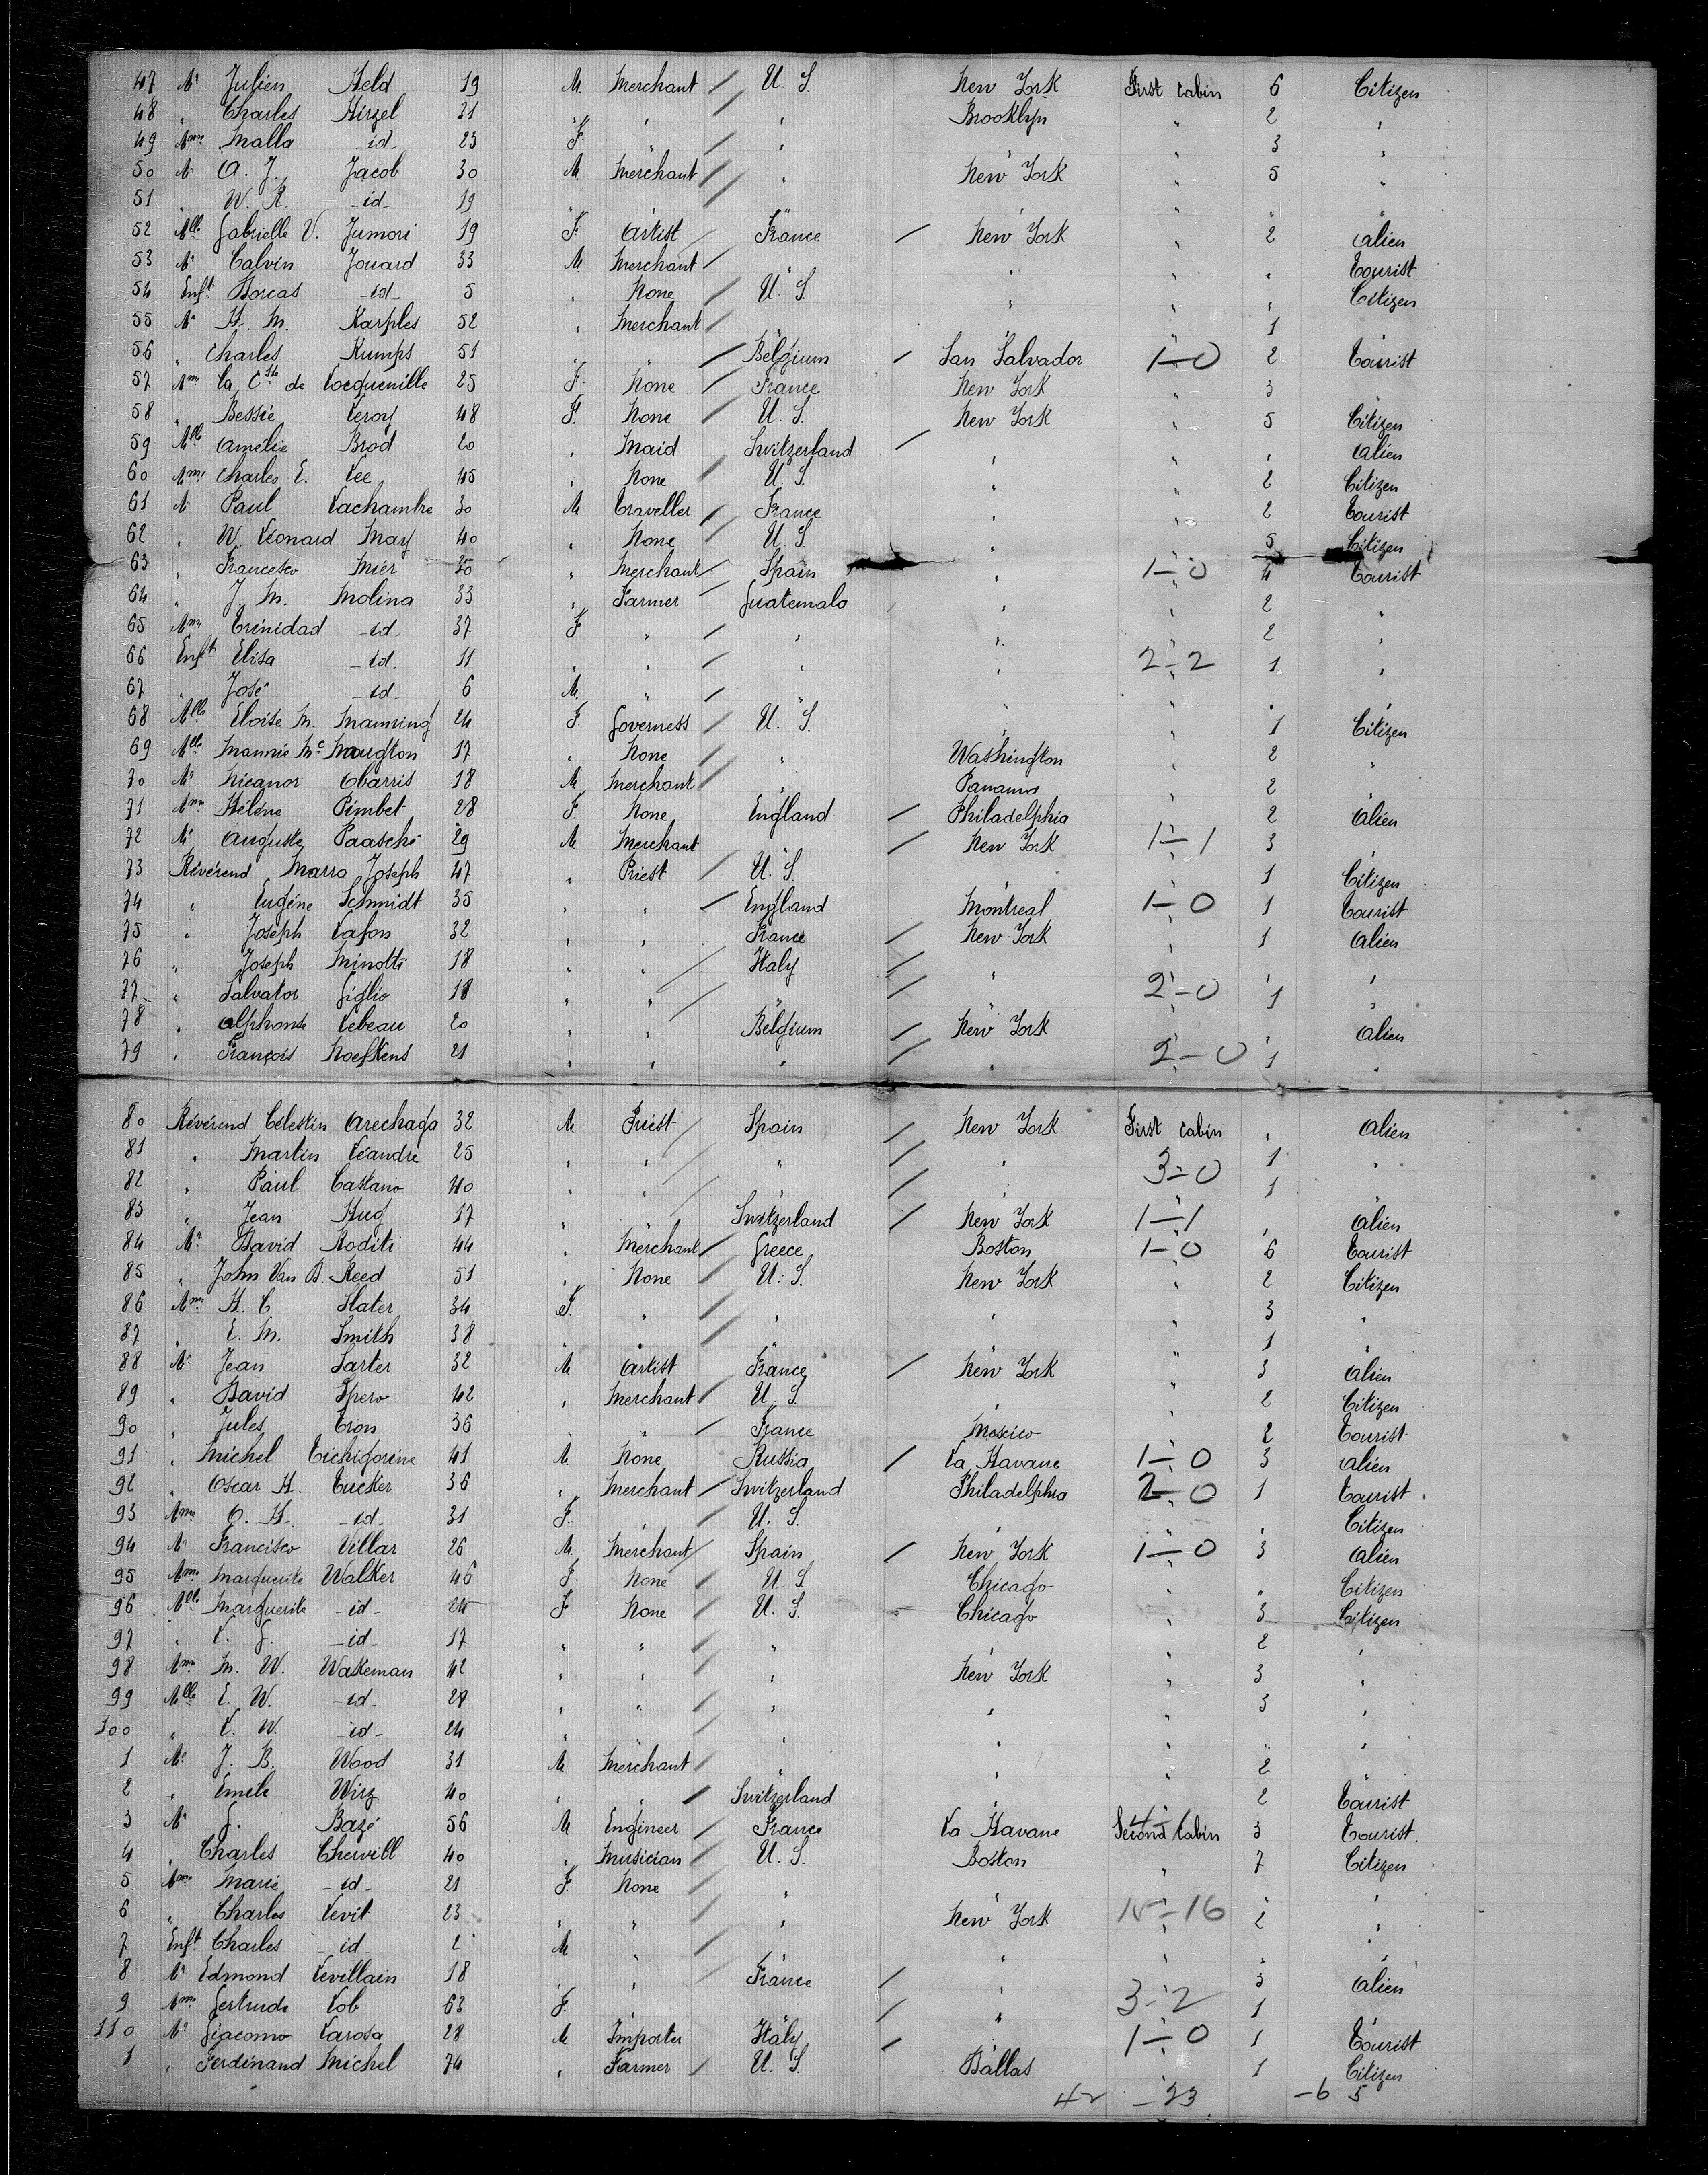 47 Mr Julien Held 19 M. Merchant / U. S. New York First Cabin 6 Citizen
48 " Charles Hirzel 31 " " / " Brooklyn " 2 "
49 Mme Malla -id- 23 F. " / " " " 3 "
50 Mr A. J. Jacob 30 M. Merchant / " New York " 5 "
51 " W. R. -id- 19 " " / " " " " "
52 Mlle Gabrielle V. Jumori 19 F. Artist / France / New York " 2 Alien
53 Mr Calvin Jouard 33 M. Merchant / " " " " Tourist
54 Enft. Dorcas -id- 5 " None / U. S. " " " Citizen
55 Mr H. M. Karples 52 " Merchant / " " " 1 "
56 " Charles Kumps 51 " " / Belgium / San Salvador 1-0 2 Tourist
57 Mme La Ctsse de Locquenille 25 F. None / France New York " 3 "
58 " Bessie Leroy 48 F. None / U. S. New York " 5 Citizen
59 Mlle Amélie Brod 20 " Maid Switzerland / " " " Alien
60 Mme Charles E. Lee 45 " None / U. S. " " 2 Citizen
61 Mr Paul Lachambre 30 M Traveller / France " " 2 Tourist
62 " W. Léonard May 40 " None / U. S. " 5 Citizen
63 " Francesco Mier 30 " Merchant / Spain " 1-0 4 Tourist
64 " J. M. Molina 33 " Farmer Guatemala " " 2 "
65 Mme Trinidad -id- 37 F " / " " " 2 "
66 Enft Elisa -id. 11 " " / " " 2-2 1 "
67 " José -id- 6 M. " / " " " " "
68 Mlle Eloise M. Manning 24 F. Governess / U. S. " " 1 Citizen
69 Mlle Mannie Mc Naugton 17 " None / " Washington " 2 "
70 Mr Nicanor Obarris 18 M Merchant / " Panama " 2 "
71 Mme Hélène Pimbet 28 F. None England / Philadelphia " 2 Alien
72 Mr Auguste Paasche 29 M Merchant " / New York 1-1 3 "
73 Révérend Marra Joseph 47 " Priest / U. S. " " 1 Citizen
74 " Eugéne Schmidt 35 " " / England Montreal 1-0 1 Tourist
75 " Joseph Lafon 32 " " France / New York " 1 Alien
76 " Joseph Minotti 18 " " / Italy / " " "
77 " Salvator Giglio 18 " " / " / 2-0 1 "
78 " Alphonse Lebeau 20 " " Belgium / New York " " Alien
79 " François Noefkens 21 " " " / " 2-0 1 "
80 Révérend Célestin Arechaga 32 M Priest / Spain / New York First Cabin " Alien
81 " Martin Léandre 25 " " / " / " 3-0 1 "
82 " Paul Castano 40 " " / " / " 1 "
83 " Jean Hug 17 " " Switzerland / New York 1-1 " Alien
84 Mr David Roditi 44 " Merchant / Greece Boston 1-0 6 Tourist
85 " John Van B. Reed 51 " None / U. S. New York " 2 Citizen
86 Mme H. C Slater 34 F. " / " " " 3 "
87 " E. M. Smith 38 " " / " " " 1 "
88 Mr Jean Sarter 32 M Artist France / New York " 3 Alien
89 " David Spero 42 " Merchant / U. S. " " 2 Citizen
90 " Jules Tron 36 " " / France Mexico " 2 Tourist
91 " Michel Tichigorine 41 M. None Russia / La Havane 1-0 3 Alien
92 " Oscar H. Tucker 36 " Merchant / Switzerland Philadelphia 2-0 1 Tourist
93 Mme O. H. -id- 31 F. " U. S. " " " Citizen
94 Mr Francisco Villar 26 M. Merchant / Spain / New York 1-0 3 Alien
95 Mme Marguerite Walker 46 F. None / U. S. Chicago " " Citizen
96 Mlle Marguerite -id- 24 F None / U. S. Chicago " 3 Citizen
97 " L. G. -id- 17 " " / " " " 2 "
98 Mme M. W. Wakeman 42 " " / " New York " 3 "
99 Mlle E. W. -id- 28 " " / " " " 3 "
100 " L. W. -id- 24 " " / " " " " "
1 Mr J. B. Wood 31 M Merchant / " " " 2 "
2 " Emile Wirz 40 " " / Switzerland " " 2 Tourist
3 Mr G. Bazé 56 M Engineer / France La Havane Second Cabin 3 Tourist.
4 " Charles Chervill 40 " Musician / U. S. Boston " 7 Citizen
5 Mme Marie -id- 21 F. None / " " " " "
6 " Charles Levit 23 " " / " New York 15-16 2 "
7 Enft. Charles id 2 M " / " " " " "
8 Mr Edmond Levillain 18 " " / France / " " 3 Alien
9 Mme Gertrude Lob 63 F. " " / " 3-2 1 "
110 Mr Giacomo Larosa 28 M Importer Italy / " 1-0 1 Tourist
1 " Ferdinand Michel 74 " Farmer / U. S. Dallas " 1 Citizen
42 -23 -6 5